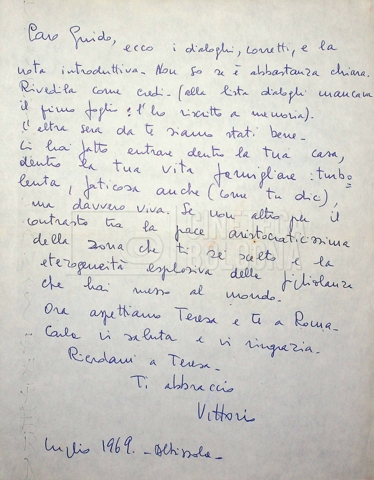 Caro Guido, ecco i dialoghi, corretti, e la
nota introduttiva. Non so se è abbastanza chiara.
Rivedila come credi (alla lista dialoghi mancava
il primo foglio: l'ho riscritto a memoria).
L'altra sera da te siamo stati bene.
Ci ha fatto entrare dentro la tua casa,
dentro la tua vita famigliare: turbo=
lenta, faticosa anche (come tu dici),
ma davvero viva. Se non altro per il
contrasto tra la pace aristocraticissima
della zona che ti sei scelto e la
eterogeneità esplosiva della figliolanza
che hai messo al mondo.
Ora aspettiamo Teresa e te a Roma.
Carla vi saluta e vi ringrazia.
Ricordami a Teresa.
Ti abbraccio
Vittorio
Luglio 1969. - Albissola -